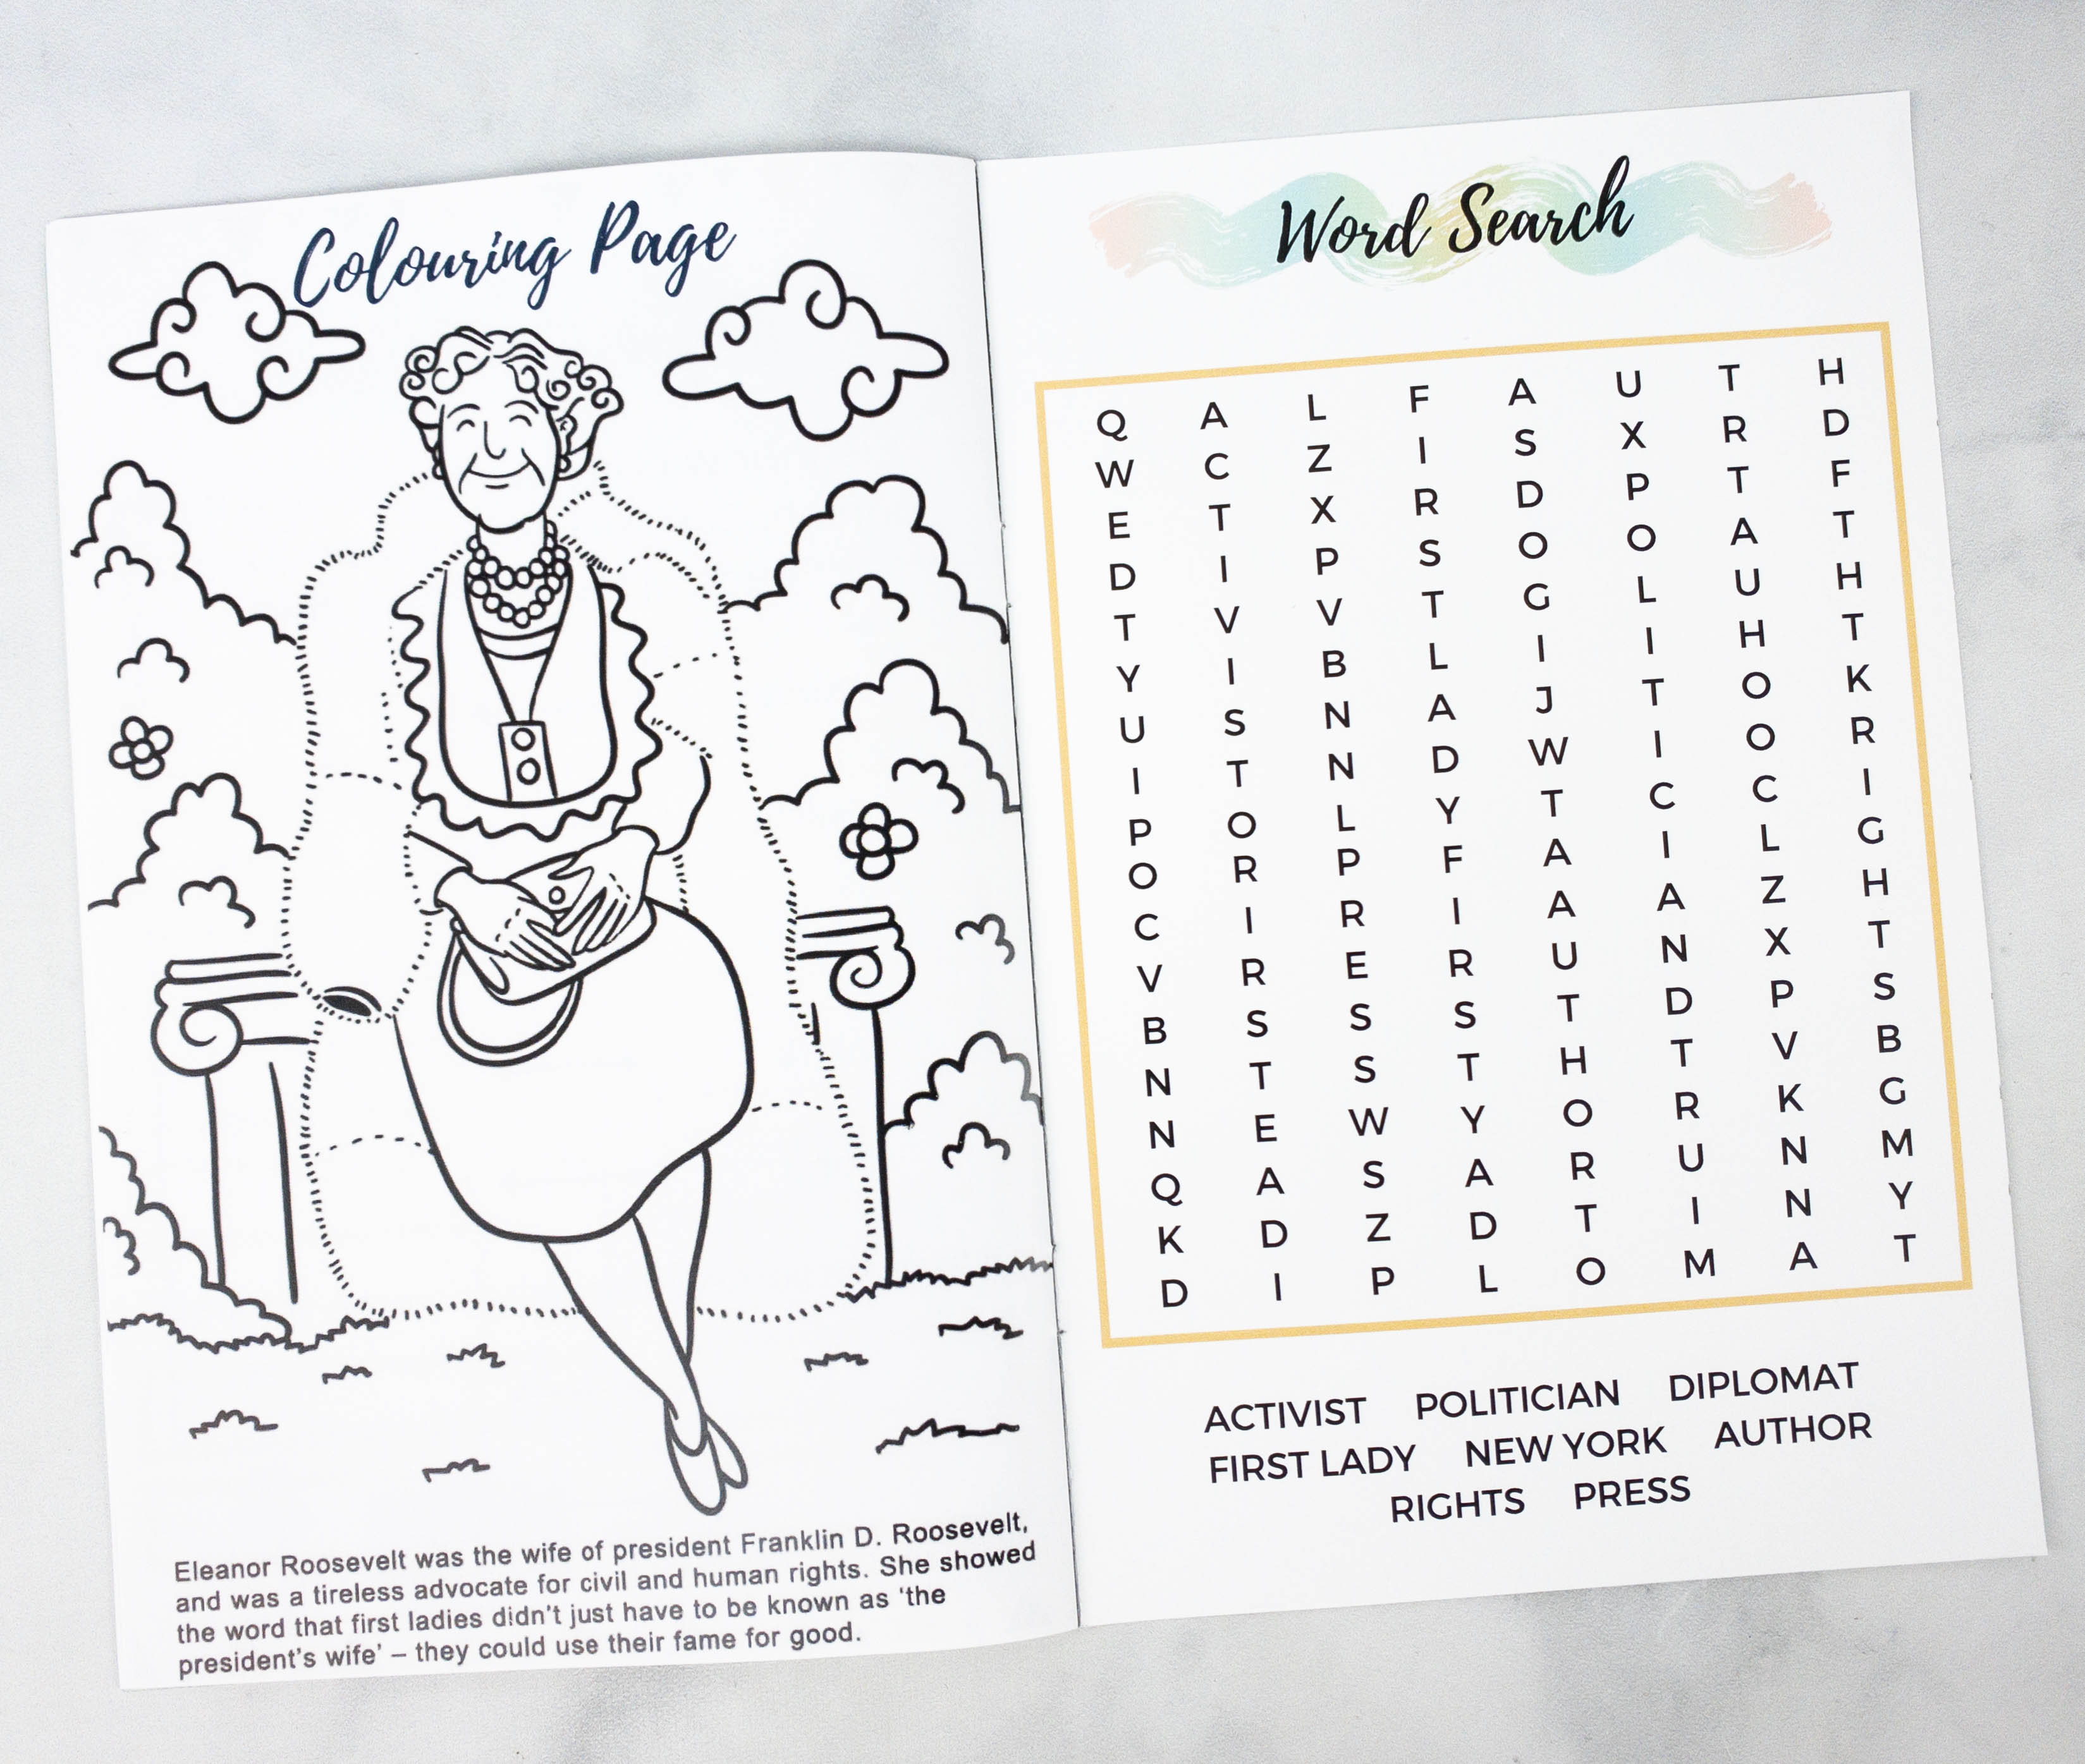 Colouring Page
Eleanor Roosevelt was the wife of president Franklin D. Roosevelt,
and was a tireless advocate for civil and human rights. She showed
the word that first ladies didn't just have to be known as ‘the
president's wife’ – they could use their fame for good.
Word Search
Q A L F A U T H
W C Z I S X R D
E T X R D P T F
D I P S O O A T
T V V T G L U H
Y I B L I I H T
U S N A J T O K
I T N D W I O R
P O L Y T C C I
O R P F A I L G
C I R I A A Z H
V R E R U N X T
B S S S T D P S
N T S T H T V B
N E W Y O R K G
Q A S A R U N M
K D Z D T I N Y
D I P L O M A T
ACTIVIST POLITICIAN DIPLOMAT
FIRST LADY NEW YORK AUTHOR
RIGHTS PRESS